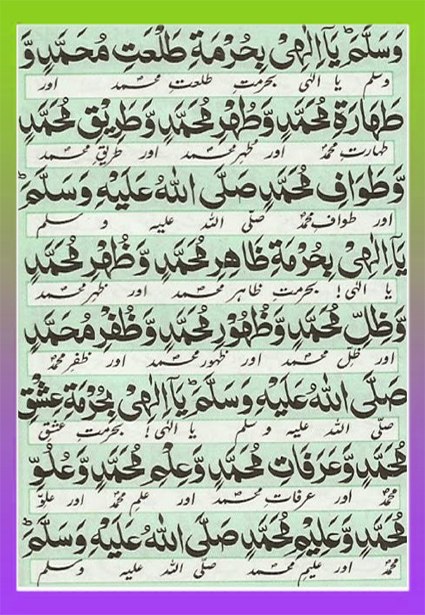 وَسَلَّمَ يَآ اِلٰهِیْ بِحُرْمَةِ طَلْعَتِ مُحَمَّدٍ وَّ
وسلم یا الٰہی بحرمتِ طلعتِ محمد اور
طَهَارَةِ مُحَمَّدٍ وَّطُهْرِ مُحَمَّدٍ وَّطَرِيْقِ مُحَمَّدٍ
طہارتِ محمدؐ اور طہرِ محمد اور طریقِ محمد
وَّطَوَافِ مُحَمَّدٍ صَلَّی اللّٰهُ عَلَيْهِ وَسَلَّمَ
اور طوافِ محمدؐ صلّی اللہ علیہ و سلم
يَآ اِلٰهِیْ بِحُرْمَةِ ظَاهِرِ مُحَمَّدٍ وَّظُهْرِ مُحَمَّدٍ
یا الٰہی! بحرمتِ ظاہرِ محمد اور ظہرِ محمد
وَّظِلِّ مُحَمَّدٍ وَّظُهُوْرِ مُحَمَّدٍ وَّظُفْرِ مُحَمَّدٍ
اور ظلِّ محمد اور ظہورِ محمد اور ظفرِ محمدؐ
صَلَّی اللّٰهُ عَلَيْهِ وَسَلَّمَ يَآ اِلٰهِیْ بِحُرْمَةِ عِشْقِ
صلّی اللہ علیہ وسلم یا الٰہی! بحرمتِ عشقِ
مُحَمَّدٍ وَّعَرَفَاتِ مُحَمَّدٍ وَّعِلْمِ مُحَمَّدٍ وَّعُلُوِّ
محمدؐ اور عرفاتِ محمد اور علمِ محمدؐ اور علوِّ
مُحَمَّدٍ وَّعَلِيْمِ مُحَمَّدٍ صَلَّی اللّٰهُ عَلَيْهِ وَسَلَّمَ
محمدؐ اور علیمِ محمد صلی اللہ علیہ وسلم